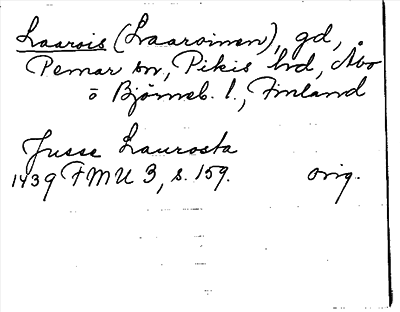 Laarois (Laaroinen), gd,
Pemar sn, Pikis hd, Åbo
o Björneb. l., Finland
Jusse Laurosta
1439 FMU 3, s. 159. orig.